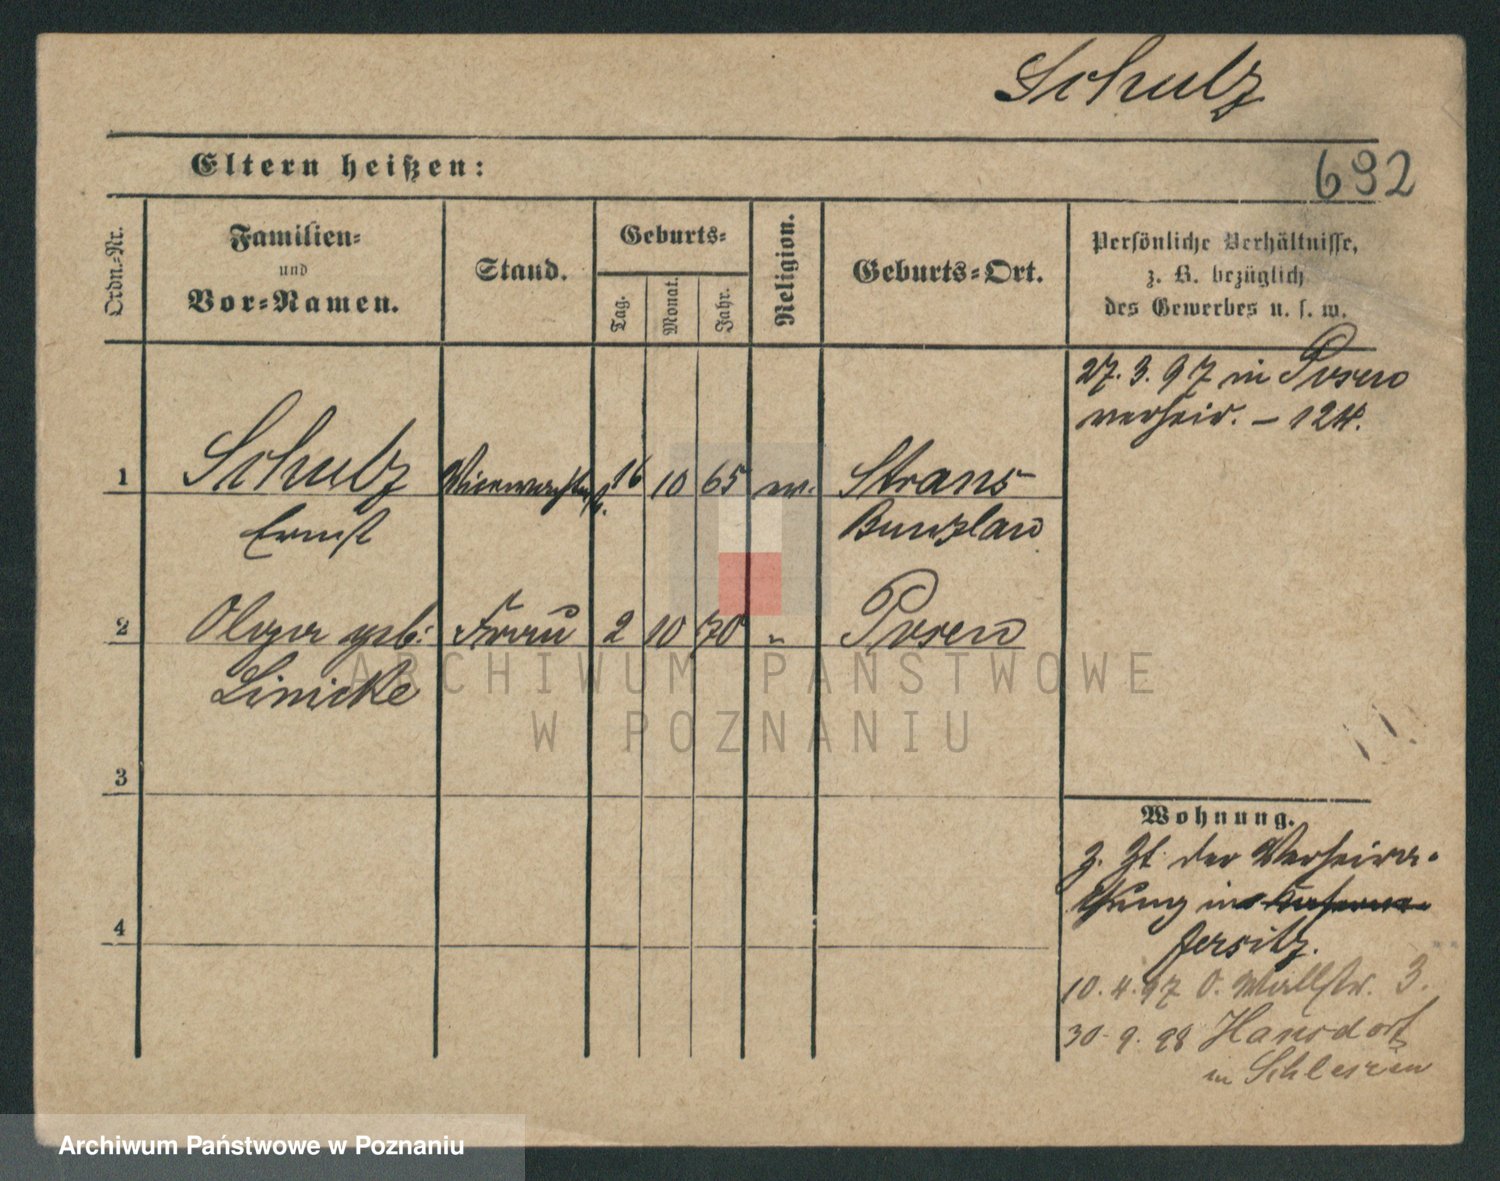 Schulz
Eltern heißen:
692
Ordn.-Nr.
Familien-
und
Vor-Namen.
Stand.
Geburts-
Tag.
Monat.
Jahr.
Religion.
Geburts-Ort.
Persönliche Verhältnisse,
z. B. bezüglich
des Gewerbes u. s. w.
27. 3. 97 in Posen
verheir. – 124.
1 Schulz 16 10 65 ev. Strans
Ernst Bunzlau
2 Olga geb: Frau 2 10 70 " Posen
Linicke
3
4
Wohnung.
z. Zt. der Verheira-
thung in
Jersitz.
10. 4. 97 O. Wallstr. 3.
30. 9. 98 Hansdorf
in Schlesien
ARCHIWUM PAŃSTWOWE
W POZNANIU
Archiwum Państwowe w Poznaniu